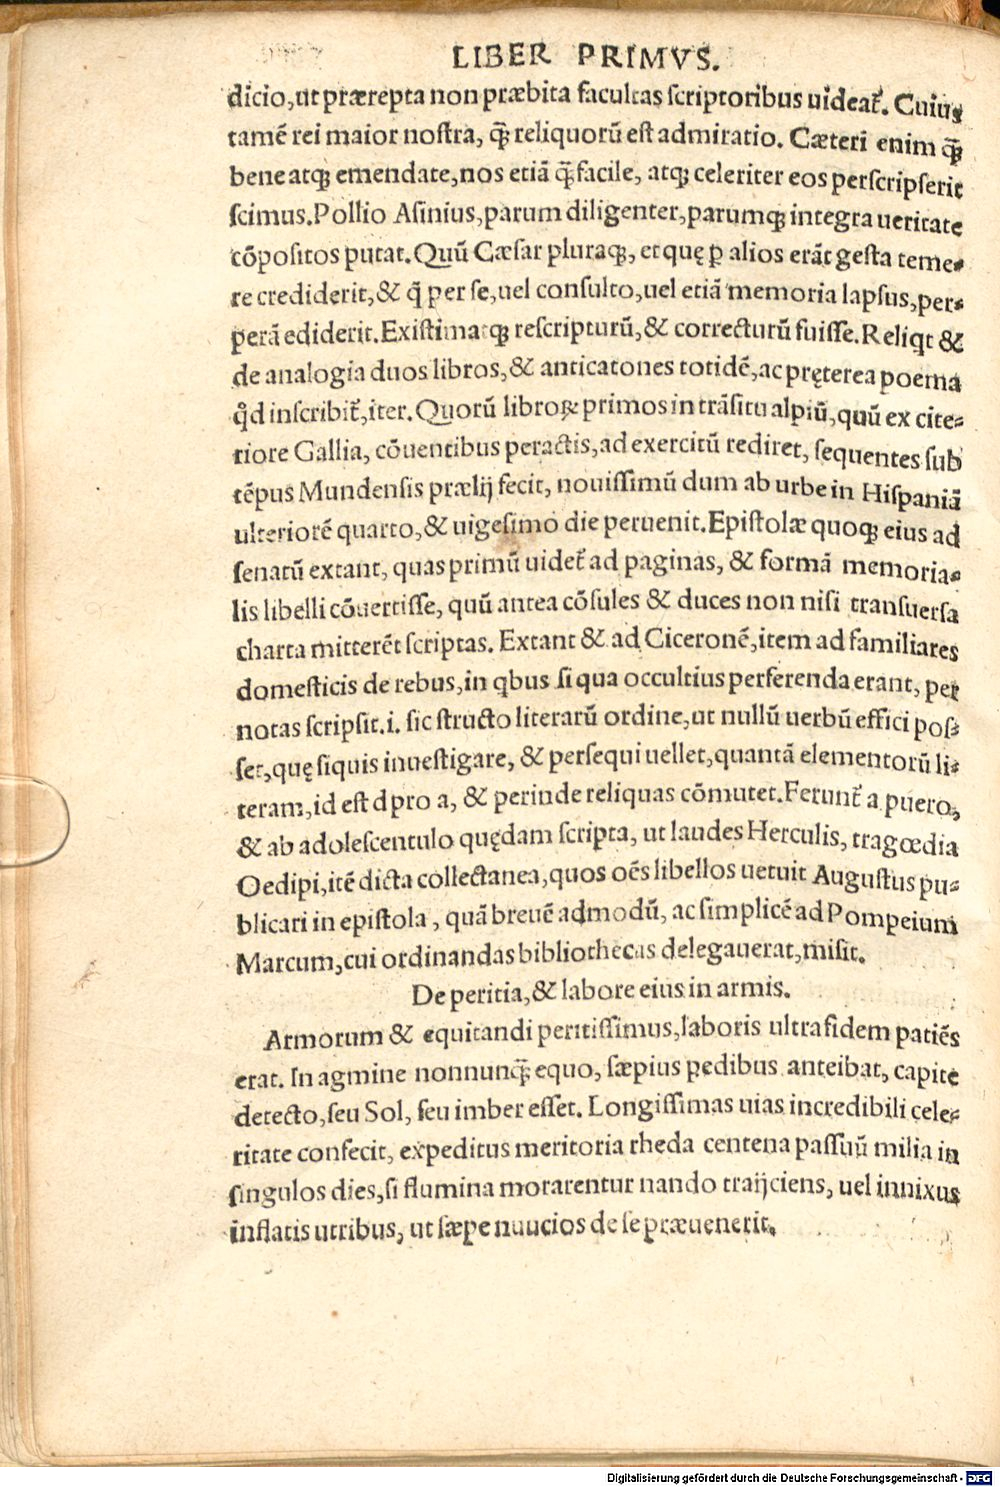 LIBER PRIMVS.
dicio,ut præreptа non præbita facultas scriptoribus uideat᷑. Cuius
tamẽ rei maior nostra, q̃ꝫ reliquorũ est admiratio. Cæteri enim q̃ꝫ
bene atqꝫ emendate,nos etiã q̃ꝫ facile, atqꝫ celeriter eos perscripserit
scimus.Pollio Asinius,parum diligenter,parumqꝫ integra ueritate
cõpositos putat.Quũ Cæsar pluraqꝫ, et quę ꝑ alios erãt gesta teme-
re crediderit,& q̃ per se,uel consulto,uel etiã memoria lapsus,per-
perã ediderit.Existimatqꝫ rescripturũ,& correcturũ fuisse.Reliqt &
de analogia duos libros,& anticatones totidẽ,ac pręterea poema
qd̉ inscribit᷑,iter.Quorũ libroꝝ primos in trãsitu alpiũ,quũ ex cite-
riore Gallia, cõuentibus peractis,ad exercitũ rediret, sequentes sub
tẽpus Mundensis prælij fecit, nouissimũ dum ab urbe in Hispaniã
ulteriorẽ quarto,& uigesimo die peruenit.Epistolæ quoqꝫ eius ad
senatũ extant, quas primũ uidet᷑ ad paginas, & formã memoria-
lis libelli cõuertisse, quũ antea cõsules & duces non nisi transuersa
charta mitterẽt scriptas. Extant & ad Ciceronẽ,item ad familiares
domesticis de rebus,in qbus si qua occultius perferenda erant, per
notas scripsit.i. sic structo literarũ ordine,ut nullũ uerbũ effici pos-
set,quę siquis inuestigare, & persequi uellet,quantã elementorũ li-
teram,id est d pro a, & perinde reliquas cõmutet.Ferunt᷑ a puero,
& ab adolescentulo quędam scripta, ut laudes Herculis, tragœdia
Oedipi,itẽ dicta collectanea,quos oẽs libellos uetuit Augustus pu-
blicari in epistola , quã breuẽ admodũ, ac simplicẽ ad Pompeium
Marcum,cui ordinandas bibliothecas delegauerat,misit.
De peritia,& labore eius in armis.
Armorum & equitandi peritissimus,laboris ultra fidem patiẽs
erat. In agmine nonnunq̃ꝫ equo, sæpius pedibus anteibat, capite
detecto,seu Sol, seu imber esset. Longissimas uias incredibili cele-
ritate confecit, expeditus meritoria rheda centena passuũ milia in
singulos dies,si flumina morarentur nando traijciens, uel innixus
inflatis utribus, ut sæpe nuucios de se præuenerit.
Digitalisierung gefördert durch die Deutsche Forschungsgemeinschaft - DFG